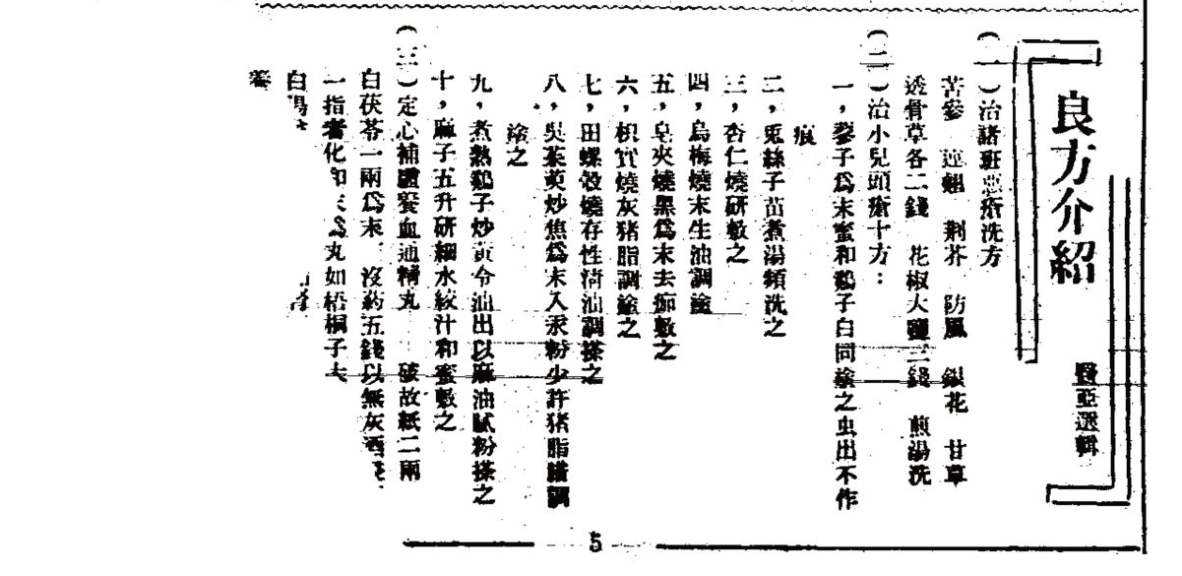 良方介紹
醫亞選輯
(一)治諸班惡瘡洗方
苦參 連翹 荆芥 防風 銀花 甘草
透骨草各二錢 花椒大鹽三錢 煎湯洗
(二)治小兒頭瘡十方：
一，蔘子為末蜜和鷄子白同塗之虫出不作
痕
二，兎絲子苗煮湯頻洗之
三，杏仁燒研敷之
四，烏梅燒末生油調塗
五，皂夾燒黑為末去痂敷之
六，枳實燒灰猪脂調塗之
七，田螺殼燒存性清油調搽之
八，吳茱萸炒焦為末入汞粉少許猪脂醋調
塗之
九，煮熟鷄子炒黃令油出以麻油膩粉搽之
十，麻子五升研細水絞汁和蜜敷之
(三)定心補養血通精丸 破故紙二兩
白茯苓一兩為末，沒葯五錢以無灰酒
一指者化和末為丸如梧桐子大
白湯
5